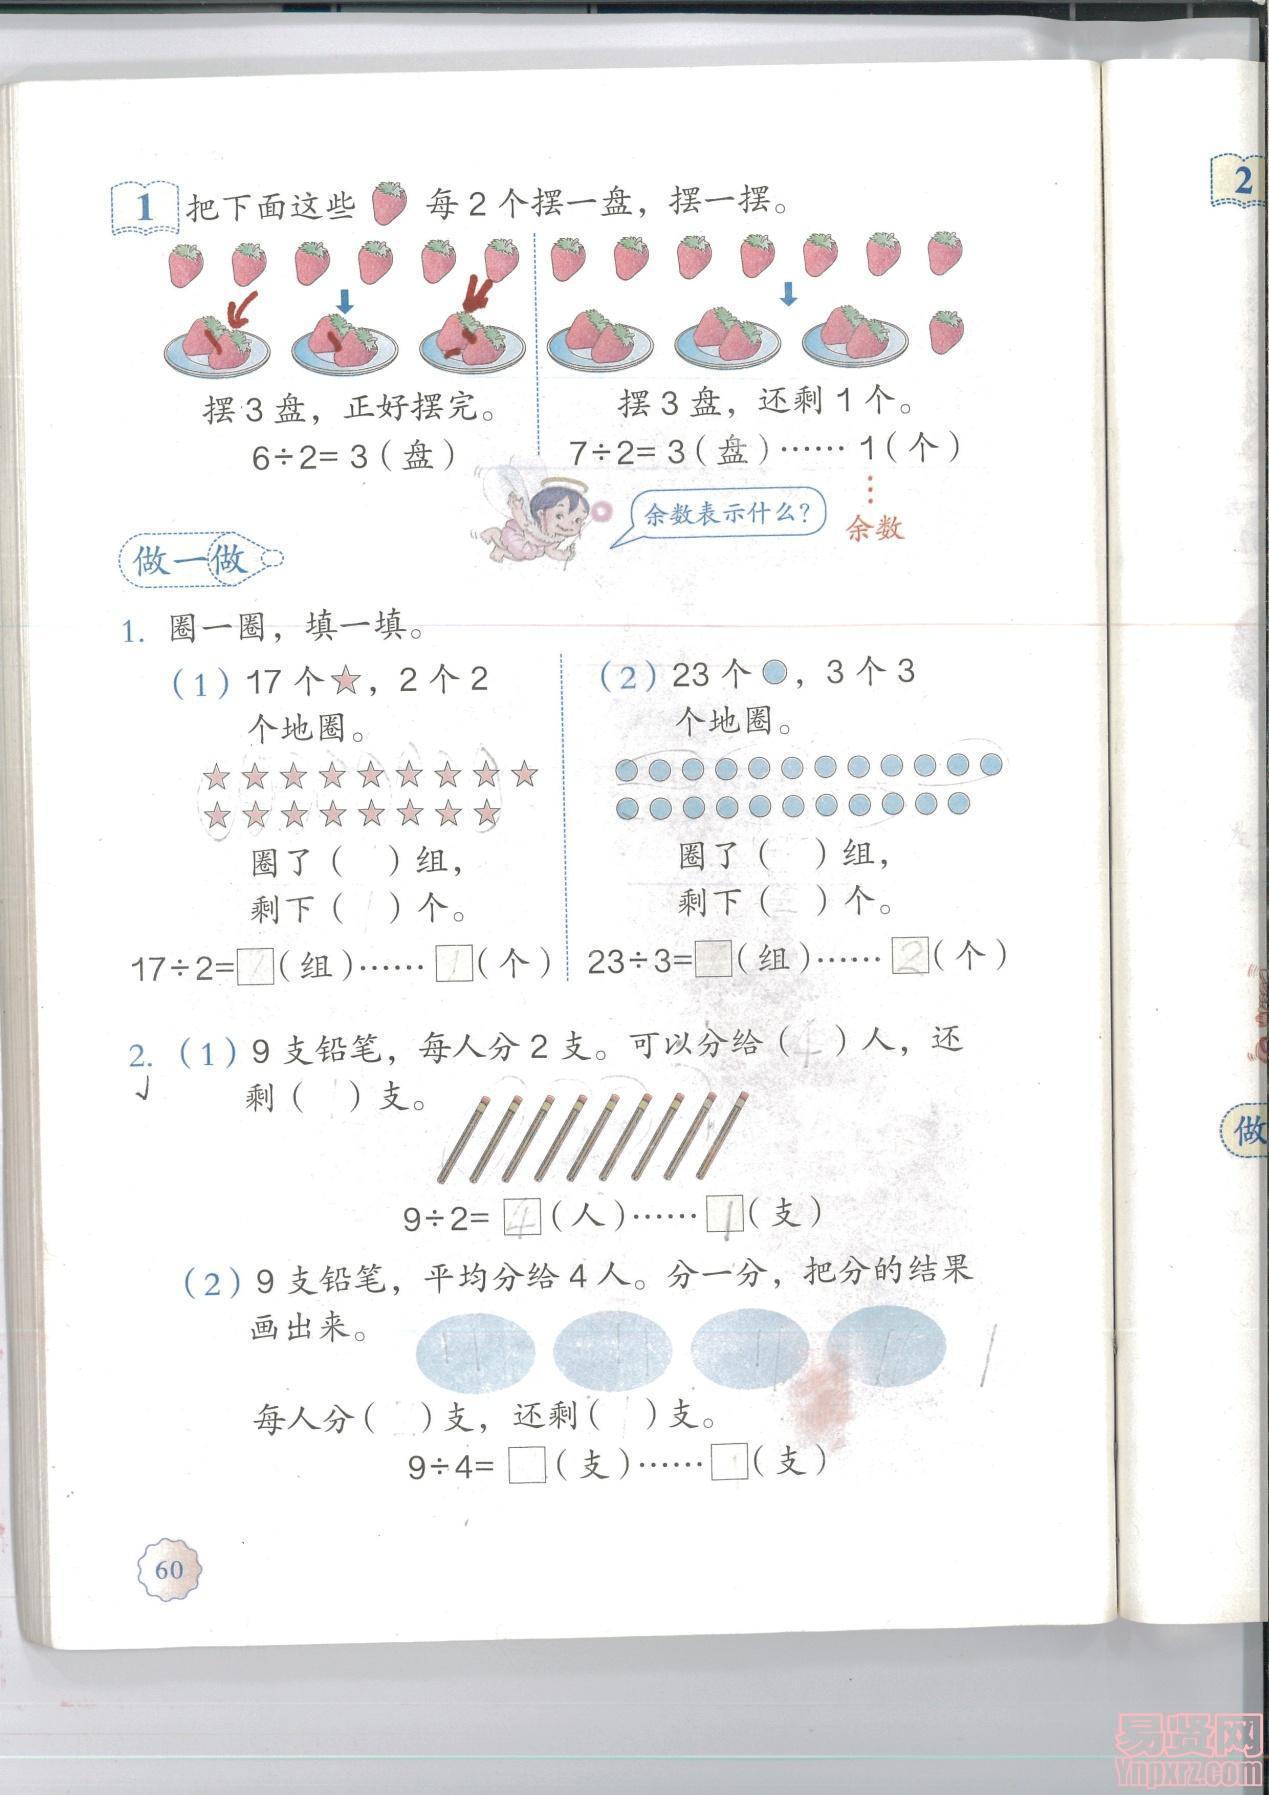 1 把下面这些 每2个摆一盘，摆一摆。
摆3盘，正好摆完。
6÷2=3(盘)
摆3盘，还剩1个。
7÷2=3(盘)……1(个)
余数表示什么？
余数
做一做
1. 圈一圈，填一填。
(1) 17个★，2个2
个地圈。
圈了( )组，
剩下( )个。
17÷2=□(组)……1(个)
(2) 23个●，3个3
个地圈。
圈了( )组，
剩下( )个。
23÷3=□(组)……2(个)
2. (1) 9支铅笔，每人分2支。可以分给(4)人，还
剩( )支。
9÷2=4(人)……1(支)
(2) 9支铅笔，平均分给4人。分一分，把分的结果
画出来。
每人分( )支，还剩( )支。
9÷4=□(支)……□(支)
60
2
做
易贤网
Ynpxrz.com